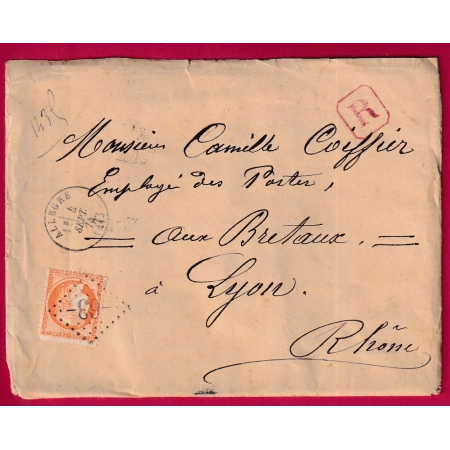 R
Monsieur Camille Coiffier
Employé des Postes,
= aux Bretaux. =
à Lyon.
Rhône
ALLEGRE
4
SEPT.